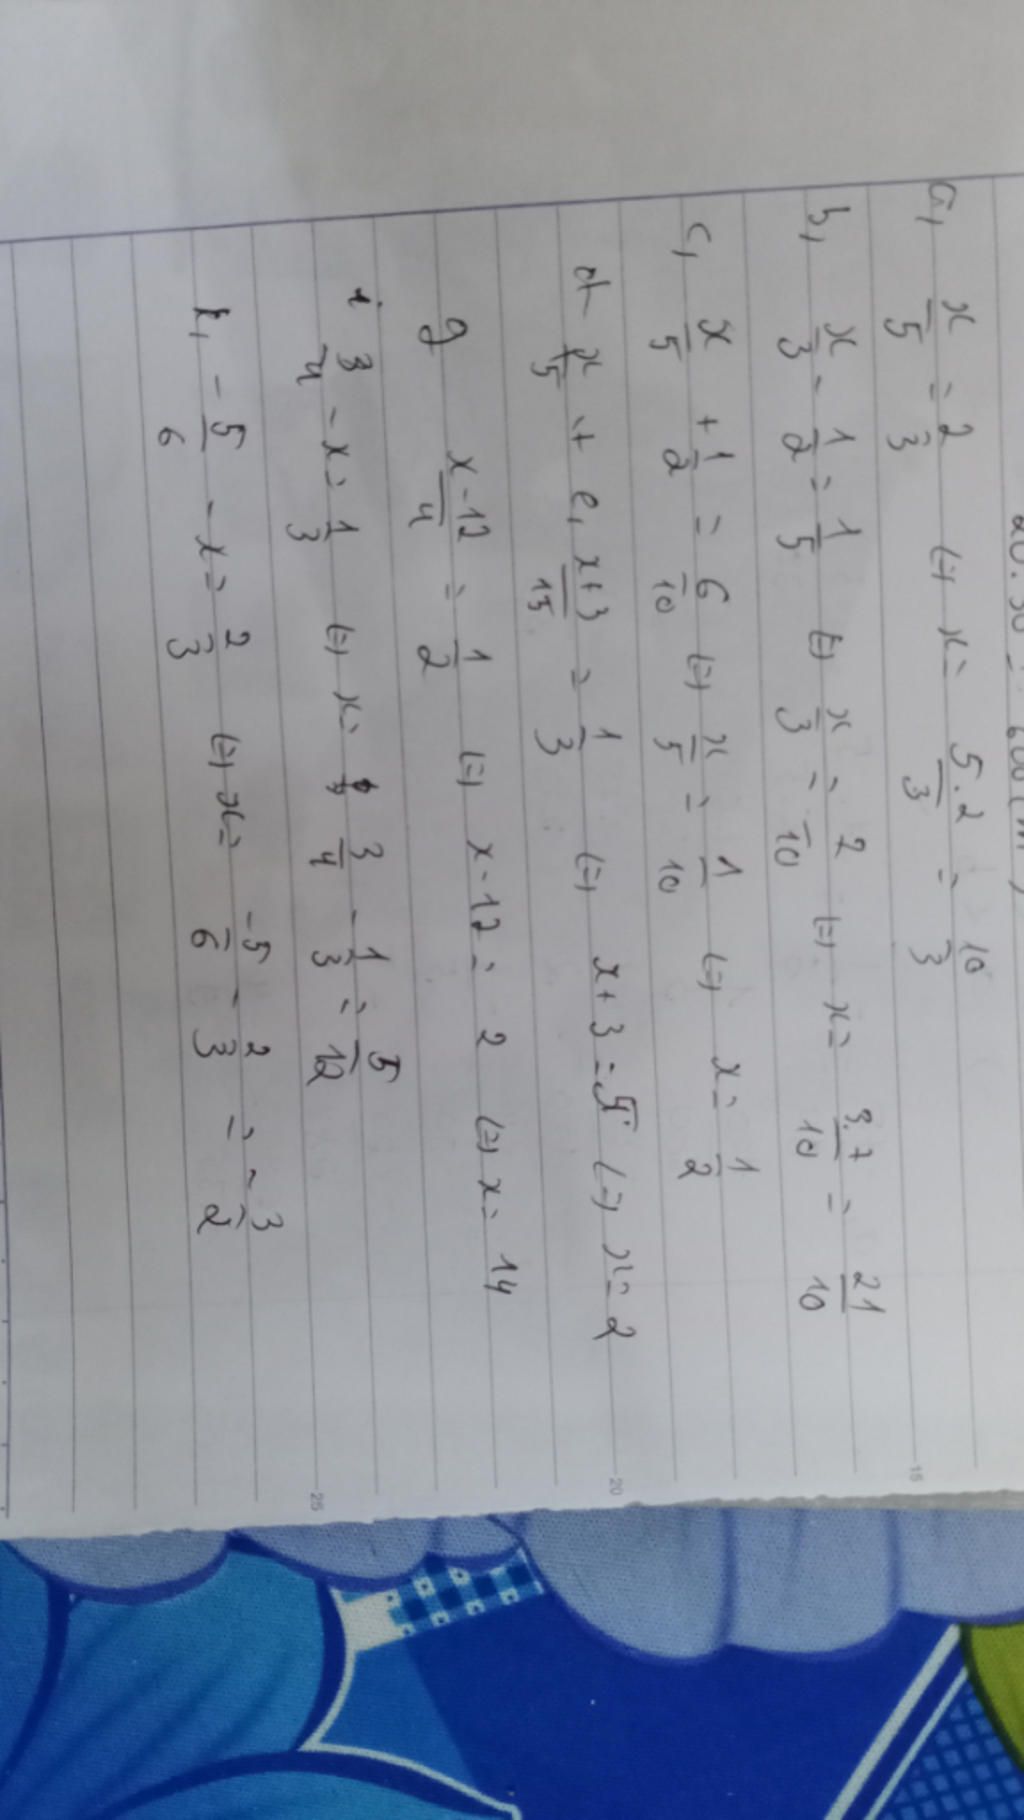 20.30 = 600 (m²)
a, x/5 = 2/3 (=) x = 5.2/3 = 10/3
b, x/3 - 1/2 = 1/5 (=) x/3 = 7/10 (=) x = 3.7/10 = 21/10
c, x/5 + 1/2 = 6/10 (=) x/5 = 1/10 (=) x = 1/2
e, x+3/15 = 1/3 (=) x + 3 = 5 (=) x = 2
g x-12/4 = 1/2 (=) x - 12 = 2 (=) x = 14
i 3/4 - x = 1/3 (=) x = 3/4 - 1/3 = 5/12
k, -5/6 - x = 2/3 (=) x = -5/6 - 2/3 = -3/2
15
20
25